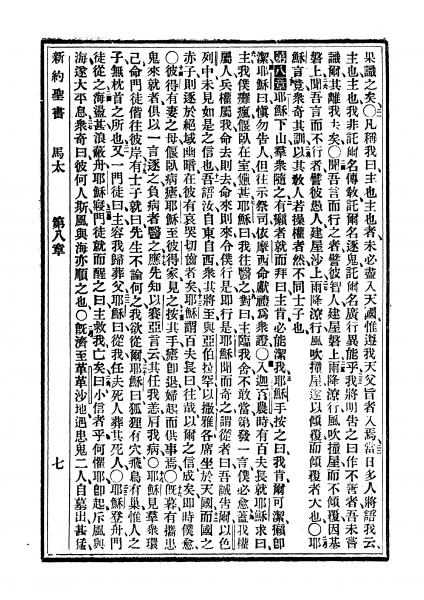 果識之矣○凡稱我曰主也主也者未必盡入天國惟遵我天父旨者入焉當日多人將語我云
主也主也我非託爾名傳敎託爾名逐鬼託爾名廣行異能乎我將明告之曰作不善者吾未嘗
識爾其離我去矣○聞吾言而行之者譬彼智人建屋磐上雨降潦行風吹撞屋不傾覆因基
磐上聞吾言而不行者譬彼愚人建屋沙上雨降潦行風吹撞屋遂以傾覆而傾覆者大也○耶
穌言竟衆奇其訓以其敎人若操權者然不同士子也
第八章耶穌下山羣衆隨之有癩者就而拜曰主肯必能潔我耶穌手按之曰我肯爾可潔癩卽
潔耶穌曰愼勿告人但往示祭司依摩西命獻禮爲衆證○入迦百農時有百夫長就耶穌求曰
主我僕癱瘋偃臥在室甚苦耶穌曰我往醫之對曰主臨我舍不敢當第發一言僕必愈蓋我權
屬人兵權屬我命去則去命來則來令僕行是卽行是耶穌聞而奇之謂從者曰吾誠告爾以色
列中未見如是之信也吾語汝自東自西衆其將至與亞伯拉罕以撒雅各席坐於天國而國之
赤子則逐於絕域幽暗在彼有哀哭切齒者矣耶穌謂百夫長曰往哉以爾之信成矣卽時僕愈
○彼得有妻之母偃臥病瘧耶穌至彼得家見之按其手瘧卽退婦起而供事焉○旣暮有攜患
鬼來就者俱以一言逐之負病者醫之應先知以賽亞言云其任我恙肩我病○耶穌見羣衆環
己命門徒偕往彼岸有士子就曰先生不論何之我欲從爾耶穌曰狐狸有穴飛鳥有巢惟人之
子無枕首之所也又一門徒曰主容我歸葬父耶穌曰從我任夫死人葬其死人○耶穌登舟門
徒從之海盪甚浪蔽舟耶穌寢門徒就而醒之曰主救我亡矣曰小信者乎何懼耶卽起斥風與
海遂大平息衆奇曰彼何人斯風與海亦順之也○旣濟至革革沙地遇患鬼二人自墓出甚猛
新約聖書 馬太 第八章 七